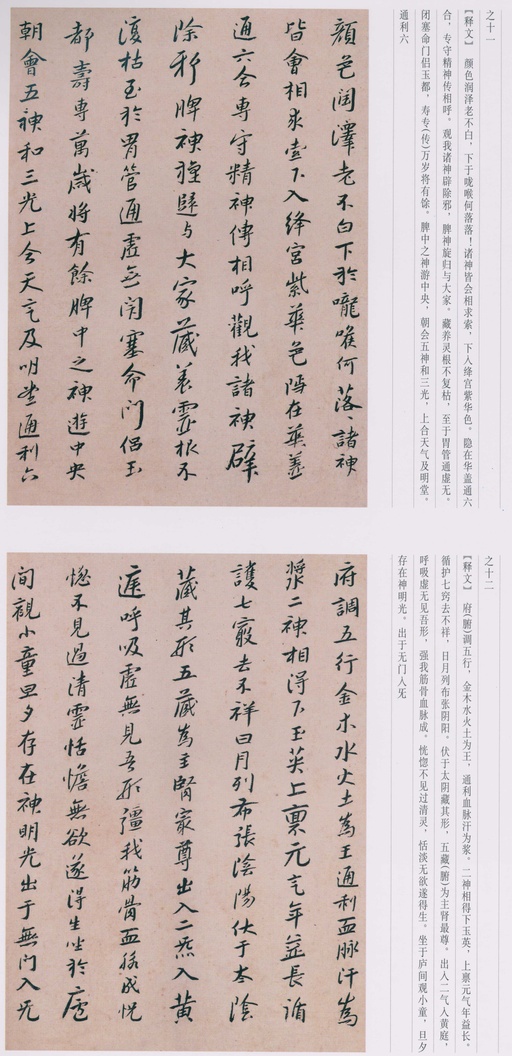 之十一
【释文】 颜色润泽老不白，下于咙喉何落落！诸神皆会相求索，下入绛宫紫华色。隐在华盖通六
合，专守精神传相呼。观我诸神辟除邪，脾神旋归与大家。藏养灵根不复枯，至于胃管通虚无。
闭塞命门侣玉都，寿专(传)万岁将有馀。脾中之神游中央，朝会五神和三光，上合天气及明堂。
通利六
顔色润澤老不白下於嚨喉何落諸神
皆會相求索下入绛宫紫華色隱在華蓋
通六合專守精神傳相呼觀我諸神辟
除邪脾神還歸与大家藏養靈根不
復枯至於胃管通虚無閇塞命門侣玉
都壽專萬歲將有餘脾中之神遊中央
朝會五神和三光上合天气及明堂通利六
之十二
【释文】 府(腑)调五行，金木水火土为王，通利血脉汗为浆。二神相得下玉英，上禀元气年益长。
循护七窍去不祥，日月列布张阴阳。伏于太阴藏其形，五藏(腑)为主肾最尊。出入二气入黄庭，
呼吸虚无见吾形，强我筋骨血脉成。恍惚不见过清灵，恬淡无欲遂得生。坐于庐间观小童，旦夕
存在神明光。出于无门入旡
府調五行金木水火土為王通利血脉汗為
漿二神相得下玉英上禀元气年益長循
護七竅去不祥日月列布張陰陽伏于太陰
藏其形五藏為主腎最尊出入二炁入黄
庭呼吸虚無見吾形彊我筋骨血脉成恍
惚不見過清靈恬惔無欲遂得生坐於廬
間觀小童旦夕存在神明光出于無門入旡